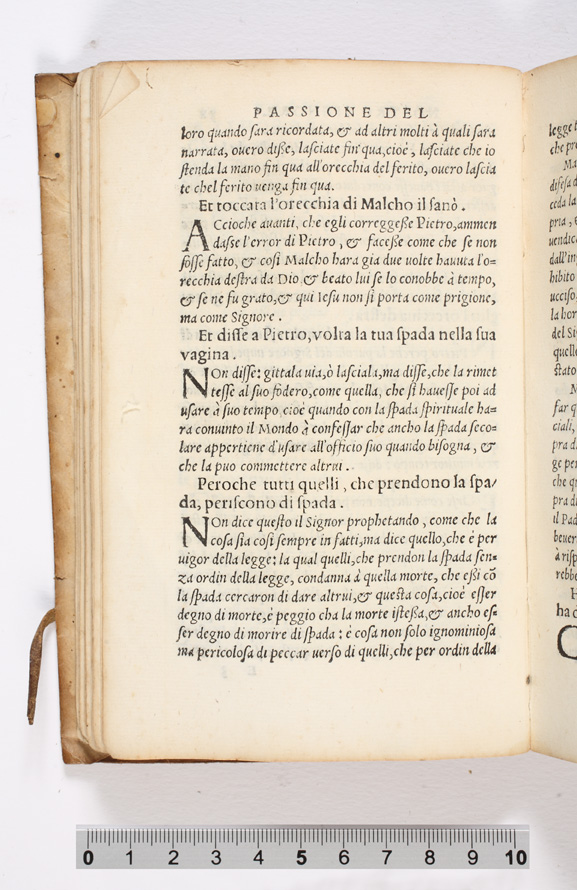 PASSIONE DEL
loro quando ſara ricordata, & ad altri molti à quali ſara
narrata, ouero diſſe, laſciate fin' qua, cioè, laſciate che io
ſtenda la mano fin qua all'orecchia del ferito, ouero laſcia
te chel ferito uenga fin qua.
Et toccata l'orecchia di Malcho il ſanò.
ACcioche auanti, che egli correggeſſe Pietro, ammen
daſſe l'error di Pietro, & faceſſe come che ſe non
foſſe fatto, & coſi Malcho hara gia due uolte hauuta l'o-
recchia deſtra da Dio, & beato lui ſe lo conobbe à tempo,
& ſe ne fu grato, & qui Ieſu non ſi porta come prigione,
ma come Signore.
Et diſſe a Pietro, volta la tua ſpada nella ſua
vagina.
NOn diſſe: gittala uia, ò laſciala, ma diſſe, che la rimet
teſſe al ſuo fodero, come quella, che ſi haueſſe poi ad
uſare à ſuo tempo, cioè quando con la ſpada ſpirituale ha-
ra conuinto il Mondo à confeſſar che ancho la ſpada ſeco-
lare appertiene d'uſare all'officio ſuo quando biſogna, &
che la puo commettere altrui.
Peroche tutti quelli, che prendono la ſpa/
da, periſcono di ſpada.
NOn dice queſto il Signor prophetando, come che la
coſa ſia coſi ſempre in fatti, ma dice quello, che è per
uigor della legge: la qual quelli, che prendon la ſpada ſen-
za ordin della legge, condanna à quella morte, che eßi cō
la ſpada cercaron di dare altrui, & queſta coſa, cioè eſſer
degno di morte, è peggio cha la morte iſteſſa, & ancho eſ-
ſer degno di morire di ſpada: è coſa non ſolo ignominioſa
ma pericoloſa di peccar uerſo di quelli, che per ordin della
legge
che pr
Ma
difeſa d
ceda la
pria,
uendic
dall'in
hibito
ucciſo,
la hor
del Si
quelle
ſtato
M
far q
ciali,
pra d
ge per
che q
pra d
il Pad
beuer
à riſp
rebbe
H
ha c
0 1 2 3 4 5 6 7 8 9 10